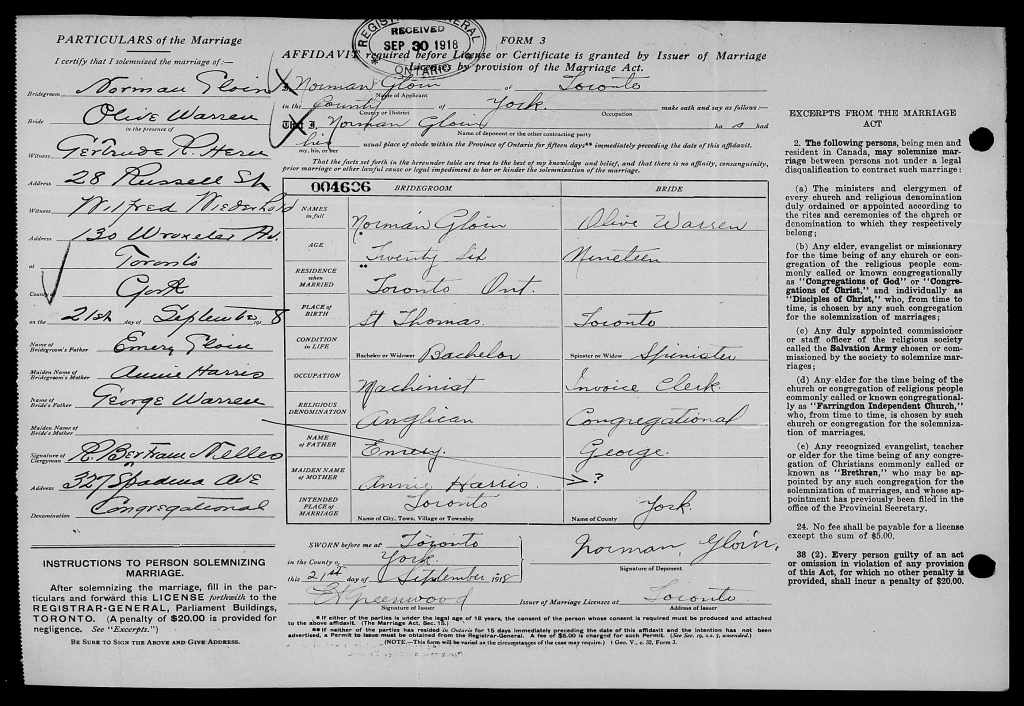 PARTICULARS of the Marriage
I certify that I solemnized the marriage of:—
Bridegroom Norman Gloin
Bride Olive Warren
in the presence of
Witness Gertrude R.
Address 28 Russell St
Witness Wilfred
Address 130 Wroxeter Av.
at Toronto
County of York
on the 21st day of September 1918
Name of Bridegroom's Father Emery Gloin
Maiden Name of Bridegroom's Mother Annie Harris
Name of Bride's Father George Warren
Maiden Name of Bride's Mother
Signature of Clergyman R. Bertram Nelles
Address 327 Spadina Ave
Denomination Congregational
INSTRUCTIONS TO PERSON SOLEMNIZING
MARRIAGE.
After solemnizing the marriage, fill in the par-
ticulars and forward this LICENSE forthwith to the
REGISTRAR-GENERAL, Parliament Buildings,
TORONTO. (A penalty of $20.00 is provided for
negligence. See "Excerpts.")
BE SURE TO SIGN THE ABOVE AND GIVE ADDRESS.
REGISTRAR GENERAL
RECEIVED
SEP 30 1918
ONTARIO
FORM 3
AFFIDAVIT required before License or Certificate is granted by Issuer of Marriage
Licenses by provision of the Marriage Act.
I, Norman Gloin of Toronto
Name of Applicant
in the County of York. make oath and say as follows:—
County or District Occupation
That I, Norman Gloin ha s had
Name of deponent or the other contracting party
his usual place of abode within the Province of Ontario for fifteen days** immediately preceding the date of this affidavit.
my, his, or her
That the facts set forth in the hereunder table are true to the best of my knowledge and belief, and that there is no affinity, consanguinity,
prior marriage or other lawful cause or legal impediment to bar or hinder the solemnization of the marriage.
004606 BRIDEGROOM BRIDE
NAMES in full Norman Gloin Olive Warren
AGE Twenty Six Nineteen
RESIDENCE when MARRIED Toronto Ont.
PLACE of BIRTH St Thomas. Toronto
CONDITION in LIFE Bachelor or Widower Bachelor Spinster or Widow Spinister
OCCUPATION Machinist Invoice Clerk
RELIGIOUS DENOMINATION Anglican Congregational
NAME of FATHER Emery. George.
MAIDEN NAME of MOTHER Annie Harris. ?
INTENDED PLACE of MARRIAGE Toronto York.
Name of City, Town, Village or Township Name of County
SWORN before me at Toronto
in the County of York.
this 21st day of September 1918
Norman, Gloin,
Signature of Deponent
Greenwood Issuer of Marriage Licenses at Toronto
Signature of Issuer Address of Issuer
*If either of the parties is under the legal age of 18 years, the consent of the person whose consent is required must be produced and attached
to the above affidavit. (The Marriage Act, Sec. 15.)
**If neither of the parties has resided in Ontario for 15 days immediately preceding the date of this affidavit and the intention has not been
advertised, a Permit to issue must be obtained from the Registrar-General. A fee of $5.00 is charged for such Permit. (See Sec. 19, s.s. 5, amended.)
(NOTE.—This form will be varied as the circumstances of the case may require.) 1 Geo. V., c. 32, Form 3.
EXCERPTS FROM THE MARRIAGE
ACT
2. The following persons, being men and
resident in Canada, may solemnize mar-
riage between persons not under a legal
disqualification to contract such marriage:
(a) The ministers and clergymen of
every church and religious denomination
duly ordained or appointed according to
the rites and ceremonies of the church or
denomination to which they respectively
belong;
(b) Any elder, evangelist or missionary
for the time being of any church or con-
gregation of the religious people com-
monly called or known congregationally
as "Congregations of God" or "Congre-
gations of Christ," and individually as
"Disciples of Christ," who, from time to
time, is chosen by any such congregation
for the solemnization of marriages;
(c) Any duly appointed commissioner
or staff officer of the religious society
called the Salvation Army chosen or com-
missioned by the society to solemnize mar-
riages;
(d) Any elder for the time being of the
church or congregation of religious people
commonly called or known congregational-
ly as "Farringdon Independent Church,"
who, from time to time, is chosen by such
church or congregation for the solemniza-
tion of marriages.
(e) Any recognized evangelist, teacher
or elder for the time being of any con-
gregation of Christians commonly called or
known as "Brethren," who may be ap-
pointed by any such congregation for the
solemnization of marriages, and whose ap-
pointment has previously been filed in the
office of the Provincial Secretary.
24. No fee shall be payable for a license
except the sum of $5.00.
38 (2). Every person guilty of an act
or omission in violation of any provision
of this Act, for which no other penalty is
provided, shall incur a penalty of $20.00.